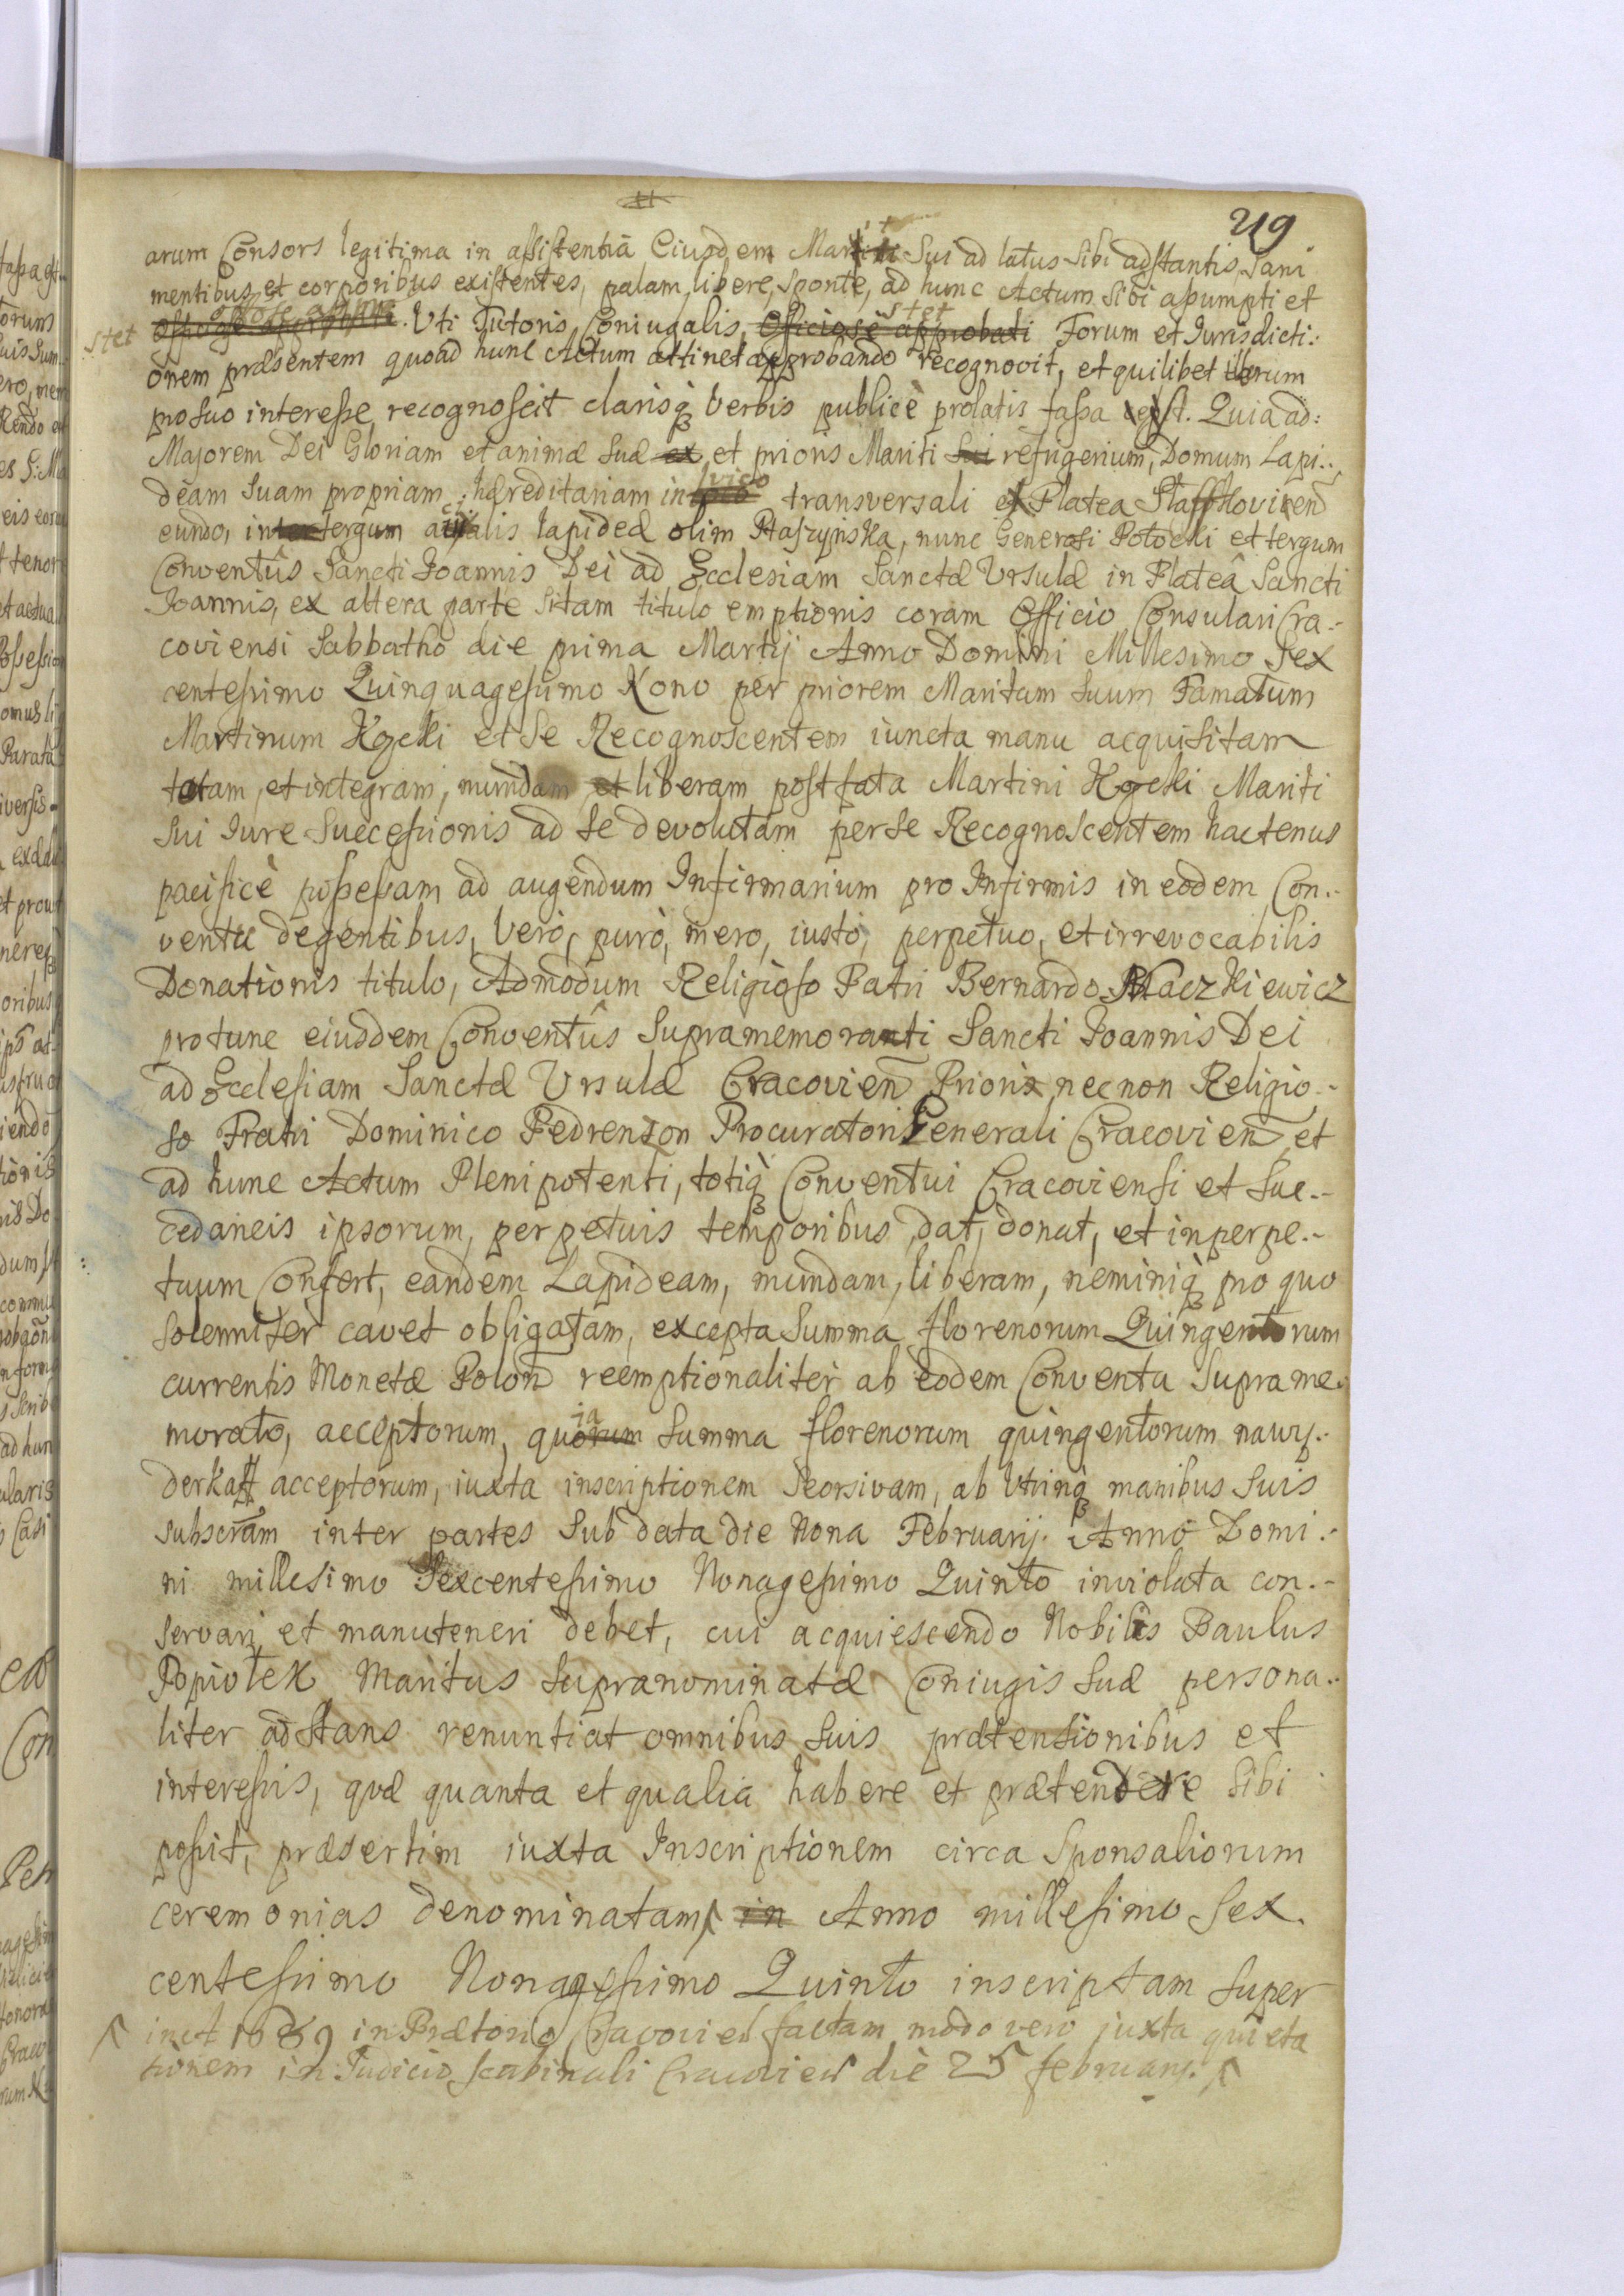 219
arum Consors legitima in assistentiâ Eiusdem Mariti Sui ad latus Sibi adstantis, Sani
mentibus et corporibus existentes, palam, libere, sponte, ad hunc Actum Sibi assumpti et
stet Uti Tutoris Coniugalis, Officiosè approbati stet Forum et Iurisdicti:
onem præsentem quoad hunc Actum attinet approbando recognovit, et quilibet illorum
pro suo interesse recognoscit clarisq verbis publicè prolatis fassa est. Quia ad:
Majorem Dei Gloriam et animæ suæ ex et prioris Mariti sui refrigerium, Domum Lapi..
deam Suam propriam hæreditariam in vico transversali et Platea Stafflkovien
eundo, in tergum acialis lapideæ olim Ptaszynska, nunc Generosi Potocki et tergum
Conventûs Sancti Joannis Dei ad Ecclesiam Sanctæ Ursulæ in Plateâ Sancti
Joannis, ex altera parte Sitam titulo emptionis coram Officio Consulari Cra.-
coviensi Sabbatho die prima Martij Anno Domini Millesimo Sex
centesimo Quinquagesimo Nono per priorem Maritum Suum Famatum
Martinum Kgcki et Se Recognoscentem iuncta manu acquisitam
totam, et integram, mundam et liberam post fata Martini Kgcki Mariti
Sui Iure Successionis ad se devolutam per se Recognoscentem hactenus
pacificè possessam ad augendum Infirmarium pro Infirmis in eodem Con.-
ventu degentibus, Vero, puro, mero, iusto, perpetuo, et irrevocabilis
Donationis titulo, Admodum Religioso Patri Bernardo
protunc eiusdem Conventûs Supramemorati Sancti Joannis Dei
ad Ecclesiam Sanctæ Ursulæ Cracovien Priori, necnon Religio.-
so Fratri Dominico Pedrenzon Procuratori Generali Cracovien et
ad hunc Actum Plenipotenti, totiq Conventui Cracoviensi et Suc.-
cedaneis ipsorum, perpetuis temporibus dat, donat, et in perpe.-
tuum Confert, eandem Lapideam, mundam, liberam, neminiq pro quo
solenniter cavet obligatam, excepta Summa florenorum Quingentorum
currentis Monetæ Polon reemptionaliter ab eodem Conventu Suprame.
morato, acceptorum, quorum ia Summa florenorum quingentorum nawy.-
derkaff acceptorum, iuxta inscriptionem Seorsivam, ab Utrinq manibus Suis
subscram inter partes Sub data die Nona Februarij. Anno Domi.-
ni millesimo Sexcentesimo Nonagesimo Quinto inviolata con.-
servari et manuteneri debet, cui acquiescendo Nobilis Paulus
Popiołek Maritus Supranominatæ Coniugis Suæ persona.-
liter adstans renuntiat omnibus Suis prætensionibus et
interessis, quæ quanta et qualia habere et prætendere Sibi
possit, præsertim iuxta Inscriptionem circa Sponsaliorum
ceremonias denominatam, in Anno millesimo Sex.
centesimo Nonagesimo Quinto inscriptam Super
in A 1689 in Prætorio Cracovien factam modo vero juxta quieta
tionem in Judicio Scabinali Cracovien die 25 februarij.